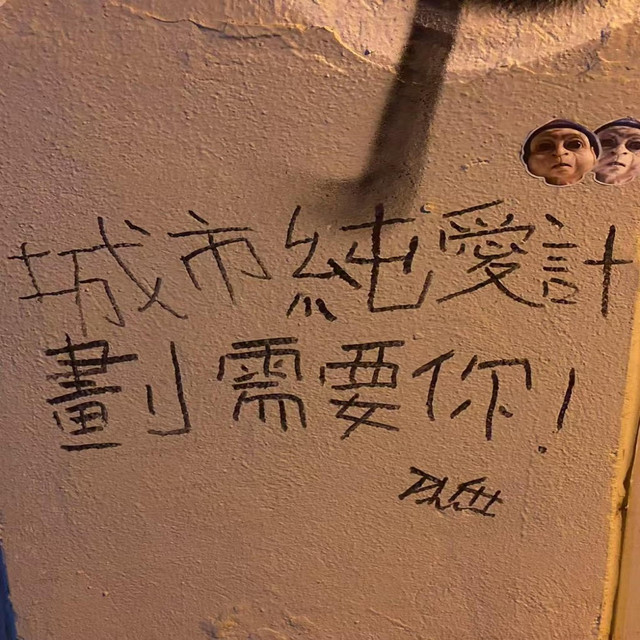 城市純愛計
劃需要你!